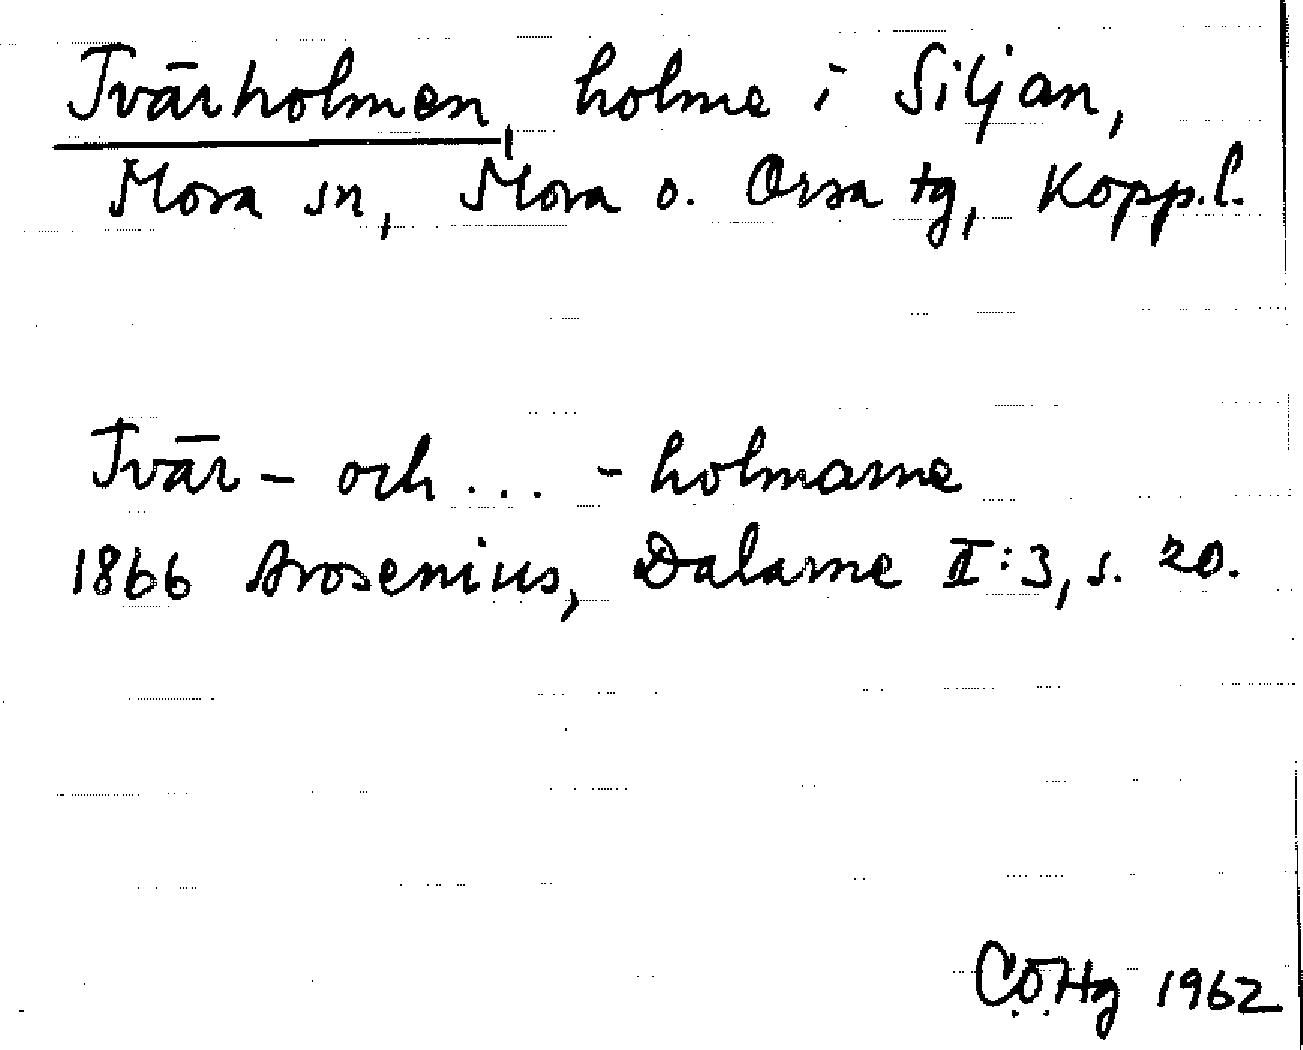 Tvärholmen, holme i Siljan,
Mora sn, Mora o. Orsa tg, Kopp.l.
Tvär- och ... -holmarne
1866 Arosenius, Dalarne II:3, s. 20.
CÖHg 1962